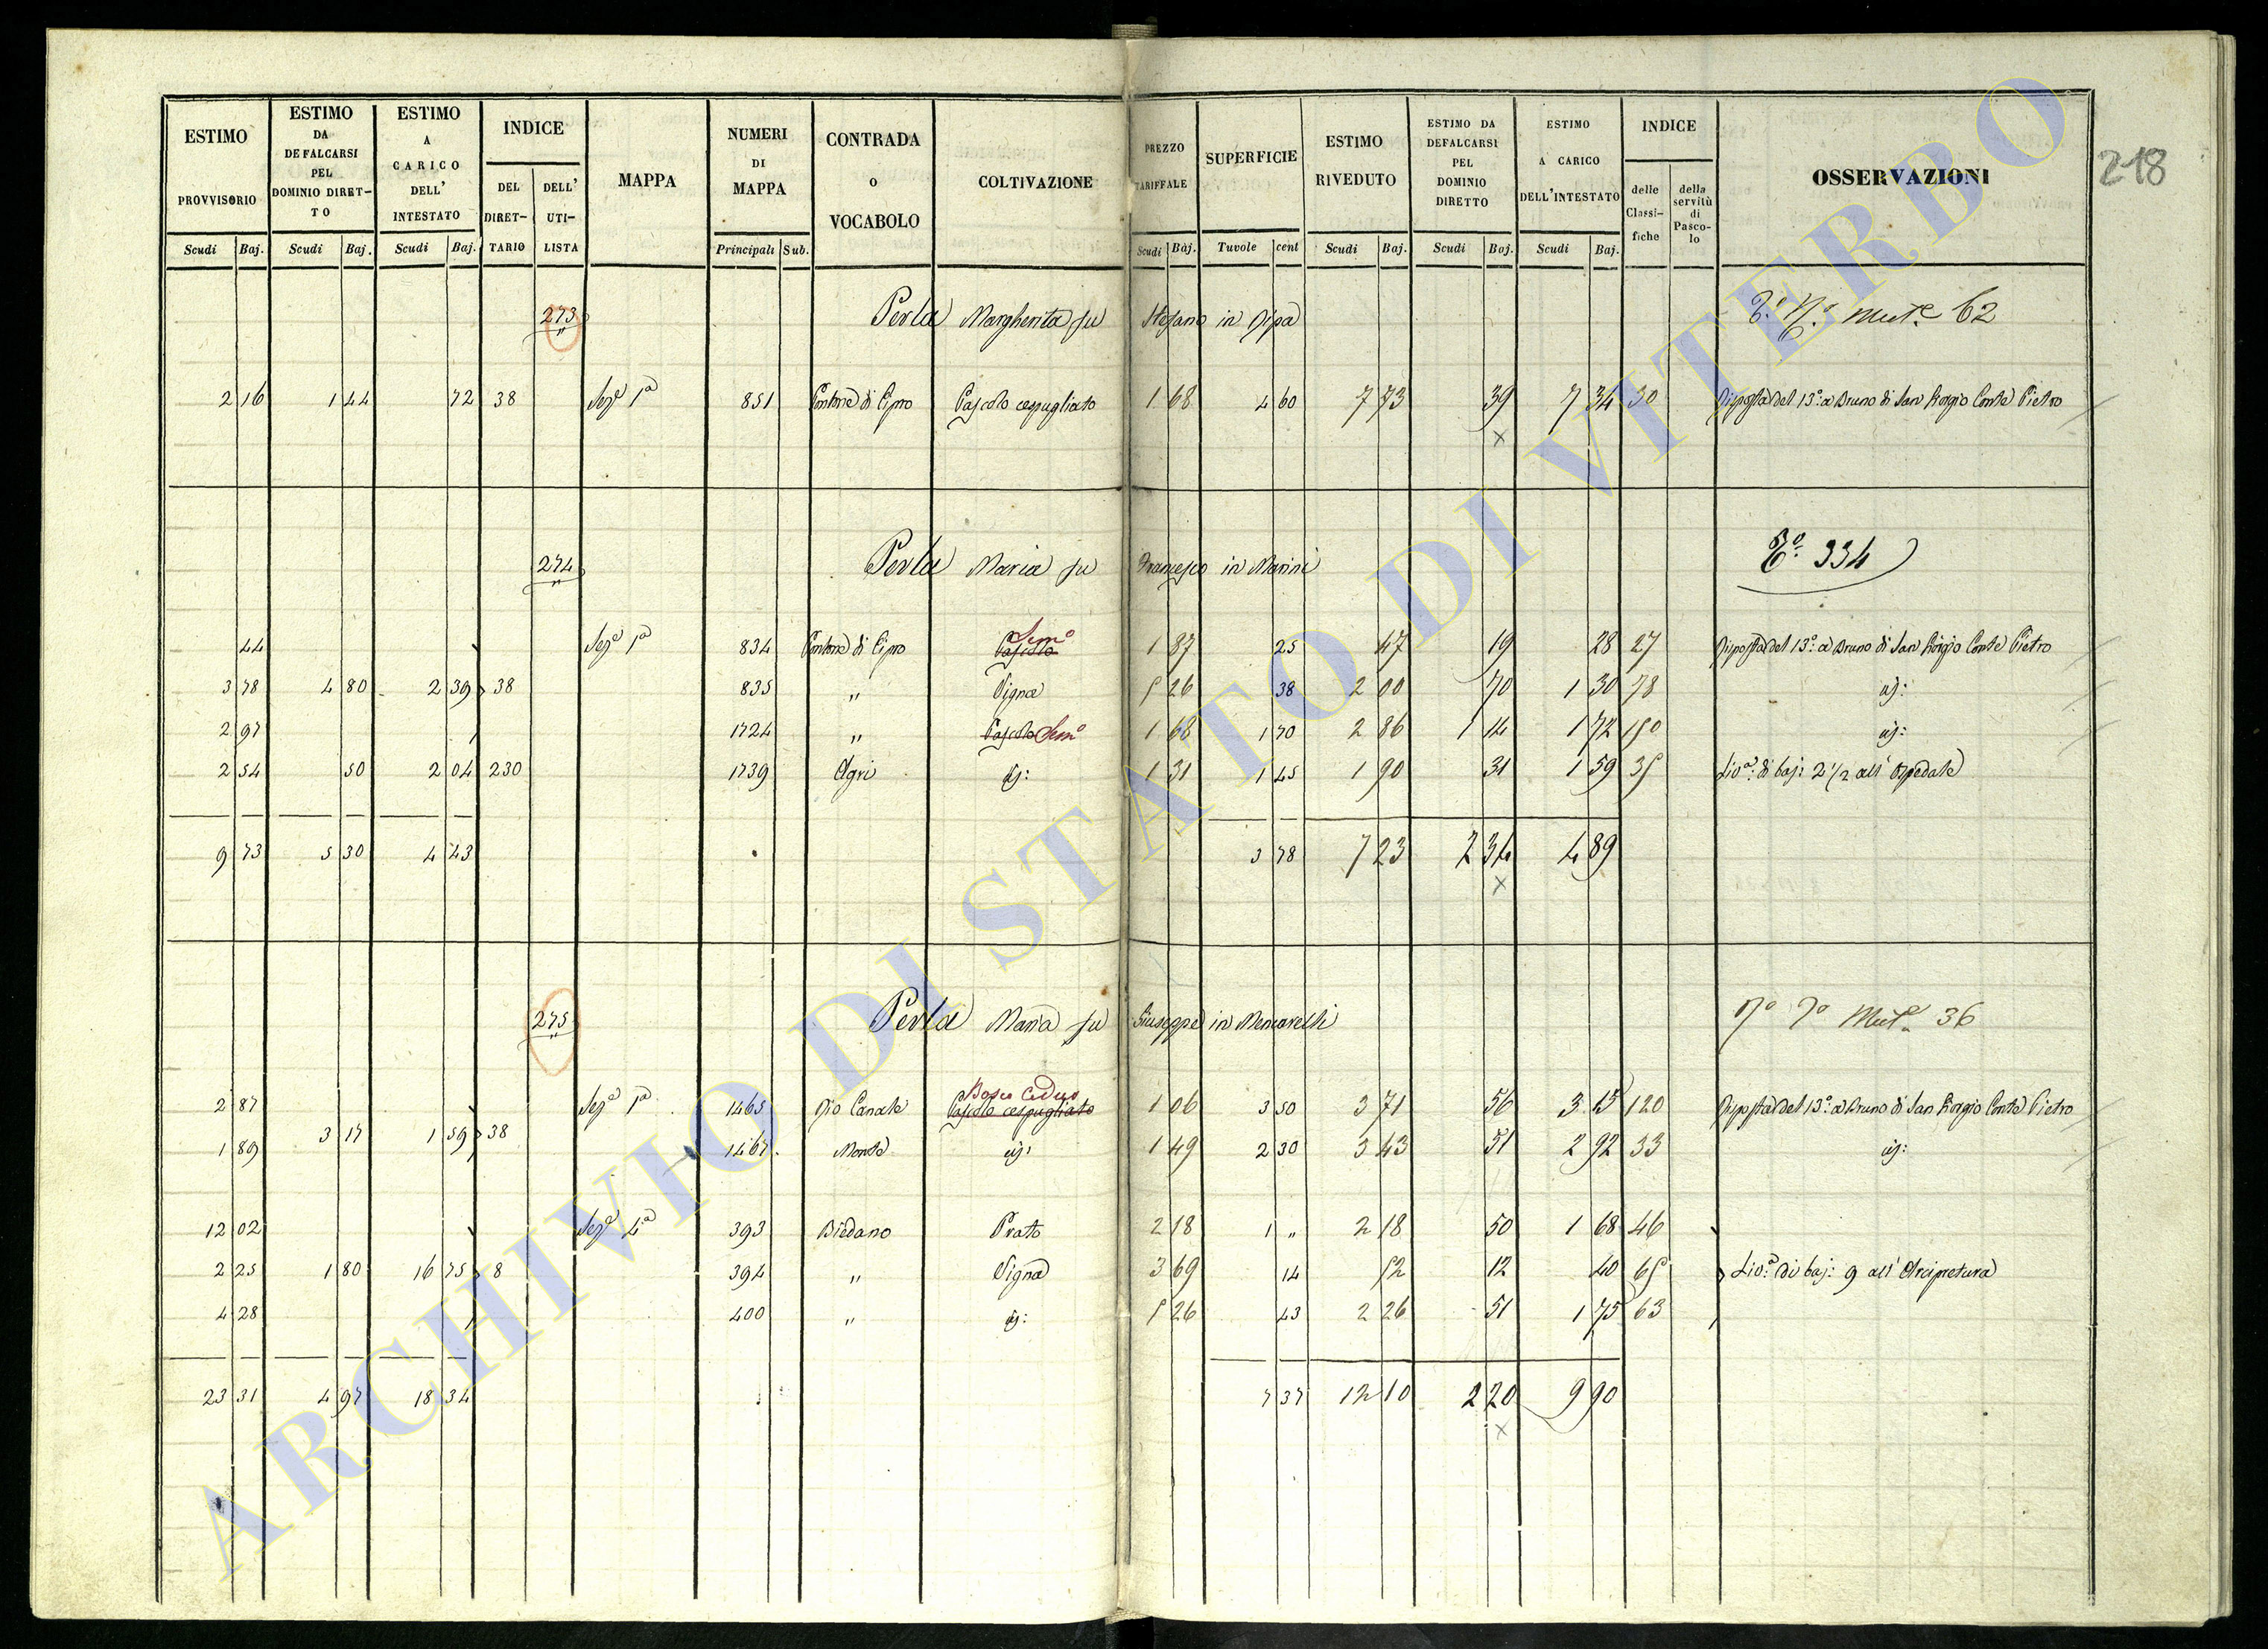 218
ESTIMO PROVVISORIO | ESTIMO DA DEFALCARSI PEL DOMINIO DIRETTO | ESTIMO A CARICO DELL' INTESTATO | INDICE DEL DIRETTARIO | DELL' UTILISTA | MAPPA | NUMERI DI MAPPA | CONTRADA O VOCABOLO | COLTIVAZIONE | PREZZO TARIFFALE | SUPERFICIE | ESTIMO RIVEDUTO | ESTIMO DA DEFALCARSI PEL DOMINIO DIRETTO | ESTIMO A CARICO DELL'INTESTATO | INDICE delle Classifiche | della servitù di Pascolo | OSSERVAZIONI
Scudi | Baj. | Scudi | Baj. | Scudi | Baj. | Principali | Sub. | Scudi | Baj. | Tavole | cent | Scudi | Baj. | Scudi | Baj. | Scudi | Baj.
273 Perla Margherita fu Stefano in Ripa Mut.e 62
2 16 | 1 44 | 72 | 38 | Sez.e 1a | 851 | Pontone di Cipro | Pascolo cespugliato | 1 68 | 4 60 | 7 73 | 39 | 7 34 | 30 | Risposta del 13.o a Bruno di San Giorgio Conte Pietro
x
274 Perla Maria fu Francesco in Marini 334
44 | Sez.e 1a | 834 | Pontone di Cipro | Pascolo Sem.o | 1 87 | 25 | 47 | 19 | 28 | 27 | Risposta del 13.o a Bruno di San Giorgio Conte Pietro
3 78 | 4 80 | 2 39 | 38 | 835 | " | Vigna | 5 26 | 38 | 2 00 | 70 | 1 30 | 78 | id:
2 97 | 1724 | " | Pascolo Sem.o | 1 68 | 1 70 | 2 86 | 1 14 | 1 72 | 150 | id:
2 54 | 50 | 2 04 | 230 | 1739 | Agri | id: | 1 31 | 1 45 | 1 90 | 31 | 1 59 | 35 | Liv.o: di baj: 2 1/2 all' Ospedale
9 73 | 5 30 | 4 43 | 3 78 | 7 23 | 2 34 | 4 89
x
275 Perla Maria fu Giuseppe in Mencarelli Mut.e 36
2 87 | Sez.e 1a | 1465 | Rio Canale | Pascolo cespugliato Bosco Ceduo | 1 06 | 3 50 | 3 71 | 56 | 3 15 | 120 | Risposta del 13.o a Bruno di San Giorgio Conte Pietro
1 89 | 3 17 | 1 59 | 38 | 1467 | Monte | id: | 1 49 | 2 30 | 3 43 | 51 | 2 92 | 33 | id:
12 02 | Sez.e 4a | 393 | Biedano | Prato | 2 18 | 1 " | 2 18 | 50 | 1 68 | 46
2 25 | 1 80 | 16 75 | 8 | 394 | " | Vigna | 3 69 | 14 | 52 | 12 | 40 | 65 | Liv.o: di baj: 9 all' Arcipretura
4 28 | 400 | " | id: | 5 26 | 43 | 2 26 | 51 | 1 75 | 63
23 31 | 4 97 | 18 34 | 7 37 | 12 10 | 2 20 | 9 90
x
ARCHIVIO DI STATO DI VITERBO